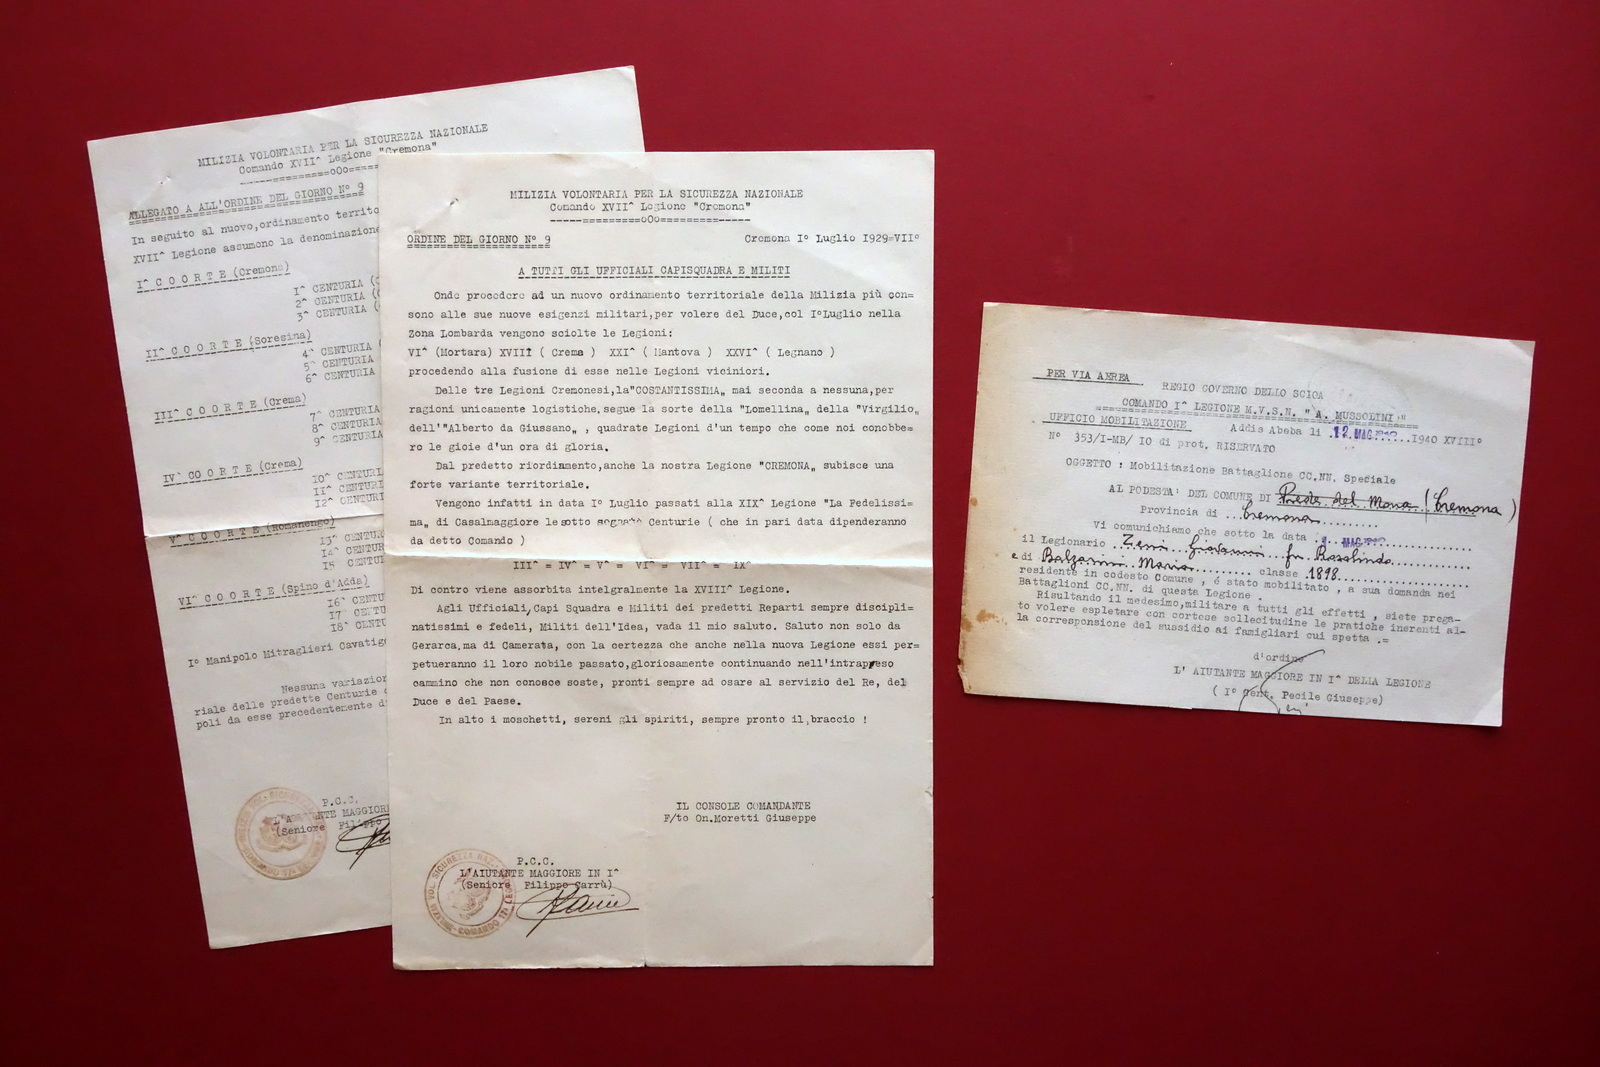 MILIZIA VOLONTARIA PER LA SICUREZZA NAZIONALE
Comando XVII^ Legione "Cremona"
----=========oOo=====
ALLEGATO A ALL'ORDINE DEL GIORNO N° 9
In seguito al nuovo,ordinamento territo
XVII^ Legione assumono la denominazione
I^ C O O R T E (Cremona)
I^ CENTURIA (C
2^ CENTURIA (
3^ CENTURIA (
II^ C O O R T E (Soresina)
4^ CENTURIA (
5^ CENTURIA
6^ CENTURIA
III^ C O O R T E (Crema)
7^ CENTURIA
8^ CENTURIA
9^ CENTURIA
IV^ CO O R T E (Crema)
IO^ CENTURI
II^ CENTURI
I2^ CENTURI
V^ C O O R T E (Romanengo)
I3^ CENTUR
I4^ CENTUR
I5 CENTUR
VI^ C O O R T E (Spino d'Adda)
I6^ CENTU
I7^ CENTU
I8^ CENTUR
I° Manipolo Mitraglieri Cavatig
Nessuna variazion
riale delle predette Centurie
poli da esse precedentemente di
P.C.C.
L'AIUTANTE MAGGIORE
(Seniore Filippo
MILIZIA VOLONTARIA PER LA SICUREZZA NAZIONALE
Comando XVII^ Legione "Cremona"
-----=========oOo=========-----
ORDINE DEL GIORNO N° 9 Cremona I° Luglio I929=VII°
A TUTTI GLI UFFICIALI CAPISQUADRA E MILITI
Onde procedere ad un nuovo ordinamento territoriale della Milizia più con=
sono alle sue nuove esigenzi militari,per volere del Duce,col I°Luglio nella
Zona Lombarda vengono sciolte le Legioni:
VI^ (Mortara) XVIII^ ( Crema ) XXI^ ( Mantova ) XXVI^ ( Legnano )
procedendo alla fusione di esse nelle Legioni viciniori.
Delle tre Legioni Cremonesi,la"COSTANTISSIMA„ mai seconda a nessuna,per
ragioni unicamente logistiche,segue la sorte della "Lomellina„ della "Virgilio„
dell'"Alberto da Giussano„ , quadrate Legioni d'un tempo che come noi conobbe=
ro le gioie d'un ora di gloria.
Dal predetto riordinamento,anche la nostra Legione "CREMONA„ subisce una
forte variante territoriale.
Vengono infatti in data I° Luglio passati alla XIX^ Legione "La Fedelissi=
ma„ di Casalmaggiore le sotto segnate Centurie ( che in pari data dipenderanno
da detto Comando )
III^ = IV^ = V^ = VI^ = VII^ = IX^
Di contro viene assorbita intelgralmente la XVIII^ Legione.
Agli Ufficiali,Capi Squadra e Militi dei predetti Reparti sempre discipli=
natissimi e fedeli, Militi dell'Idea, vada il mio saluto. Saluto non solo da
Gerarca,ma di Camerata, con la certezza che anche nella nuova Legione essi per=
petueranno il loro nobile passato,gloriosamente continuando nell'intrapreso
cammino che non conosce soste, pronti sempre ad osare al servizio del Re, del
Duce e del Paese.
In alto i moschetti, sereni gli spiriti, sempre pronto il braccio !
IL CONSOLE COMANDANTE
F/to On.Moretti Giuseppe
P.C.C.
L'AIUTANTE MAGGIORE IN I^
(Seniore Filippo Carrù)
MILIZIA VOL. SICUREZZA NAZ.
COMANDO 17^ LEG
PER VIA AEREA
REGIO GOVERNO DELLO SCIOA
COMANDO I^ LEGIONE M.V.S.N. " A. MUSSOLINI "
UFFICIO MOBILITAZIONE Addis Abeba li 12 MAG ... I940 XVIII°
N° 353/I-MB/ IO di prot. RISERVATO
OGGETTO : Mobilitazione Battaglione CC.NN. Speciale
AL PODESTA' DEL COMUNE DI (Cremona)
Provincia di ..Cremona..........
Vi comunichiamo che sotto la data MAG
il Legionario Zeni Giovanni fu Rosolindo
e di Balzarini Maria classe 1898
residente in codesto Comune , é stato mobilitato , a sua domanda nei
Battaglioni CC.NN. di questa Legione .
Risultando il medesimo,militare a tutti gli effetti , siete prega-
to volere espletare con cortese sollecitudine le pratiche inerenti al-
la corresponsione del sussidio ai famigliari cui spetta .=
d'ordine
L' AIUTANTE MAGGIORE IN I^ DELLA LEGIONE
( I° Cent. Pecile Giuseppe)